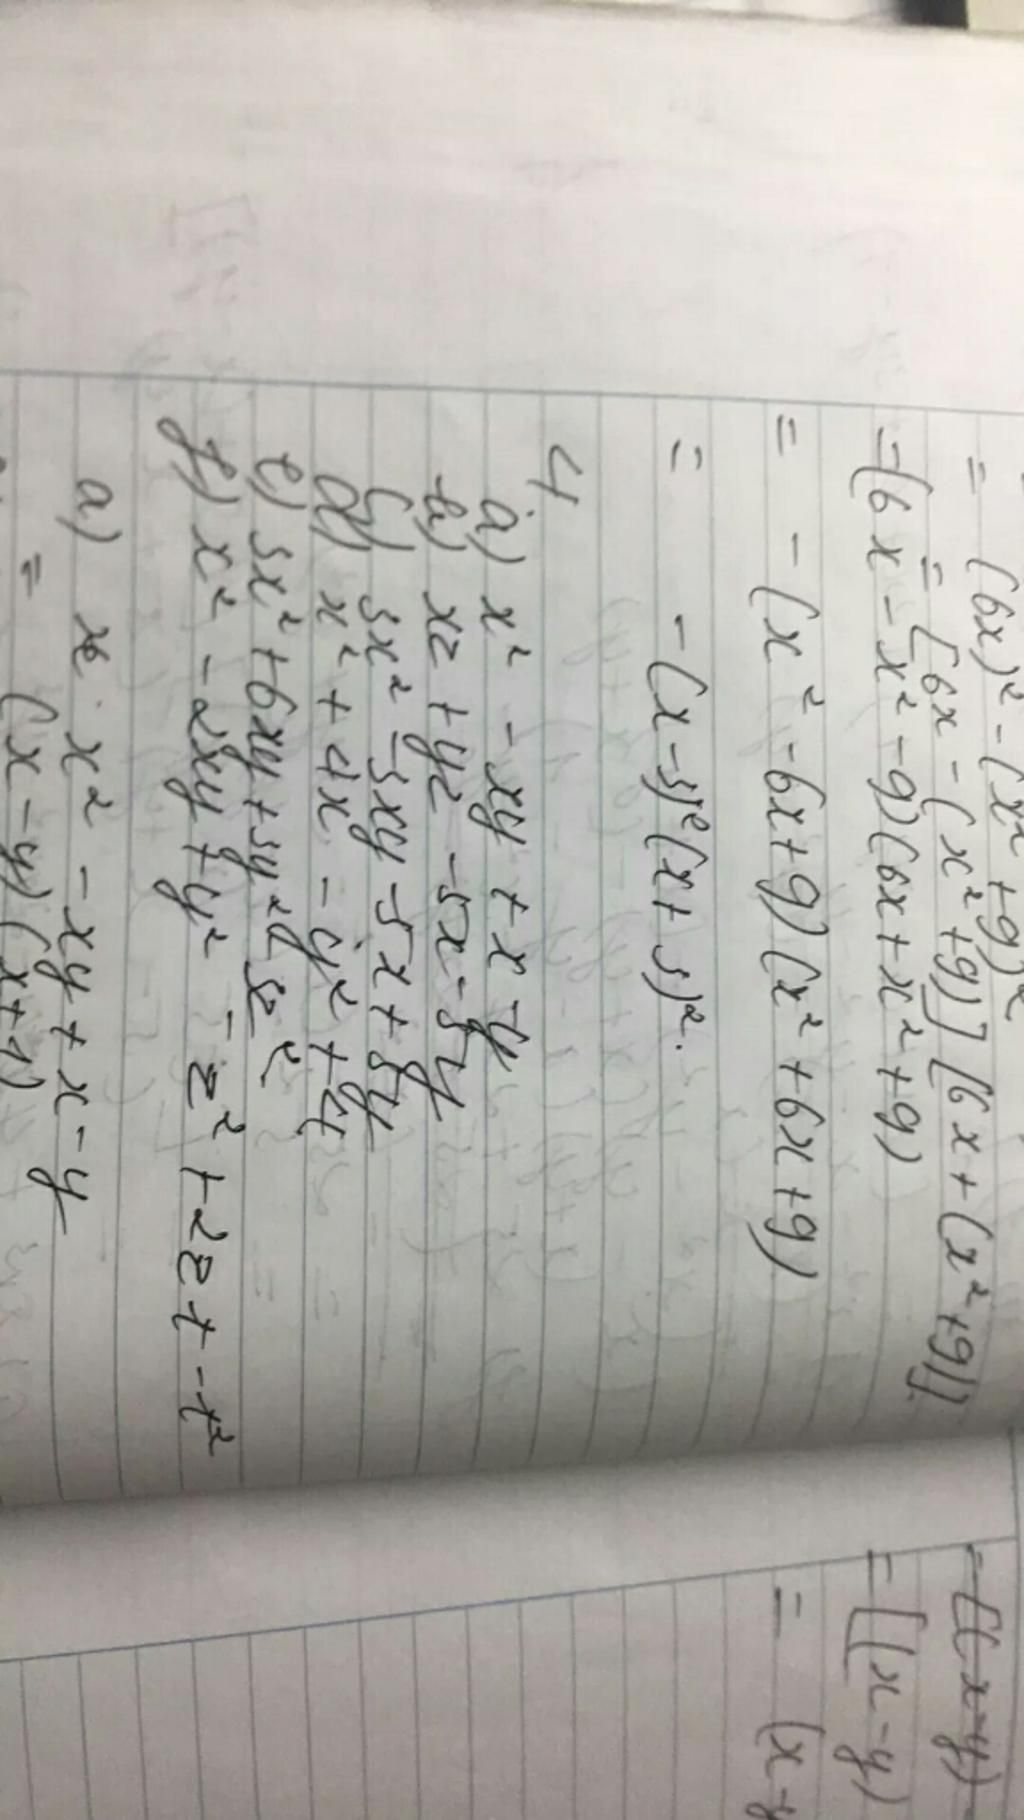 = (6x)² - (x² + 9)²
= [6x - (x² + 9)] [6x + (x² + 9)]
= (6x - x² - 9)(6x + x² + 9)
= - (x² - 6x + 9)(x² + 6x + 9)
= - (x - 3)²(x + 3)².
4
a) x² - xy + x - y
b) xz + yz - 5x - 5y
c) 3x² - 3xy - 5x + 5y
d) x² + 4x - y² + 4
e) 3x² + 6xy + 3y² - 3z²
f) x² - 2xy + y² - z² + 2zt - t²
a) x² - xy + x - y
= (x - y)(x + 1)
= [(x - y)
= [(x - y)
= (x - y